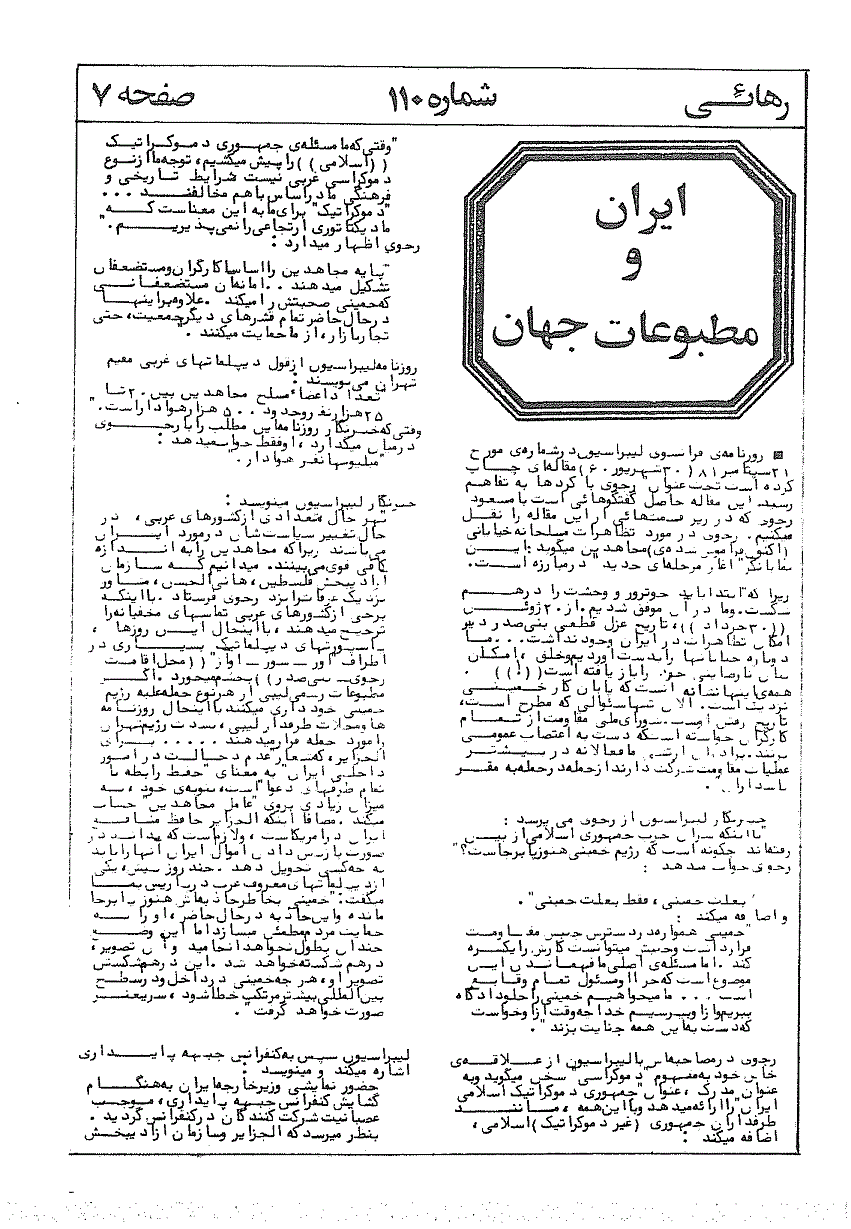 رهائی
شماره ۱۱۰
صفحه ۷
ایران
و
مطبوعات جهان
روزنامه‌ی فرانسوی لیبراسیون در شماره‌ی مورخ
۲۱ سپتامبر ۸۱ (۳۰ شهریور ۶۰) مقاله‌ای چاپ
کرده است تحت عنوان "رجوی با کردها به تفاهم
رسید. این مقاله حاصل گفتگوهائی است با مسعود
رجوی که در زیر قسمتهائی از این مقاله را نقل
میکنیم. رجوی در مورد تظاهرات مسلحانه خیابانی
(اکنون فراموش شده‌ی) مجاهدین میگوید: این
نمایانگر "آغاز مرحله‌ای جدید" در مبارزه است.
زیرا که "ابتدا باید جو ترور و وحشت را در هم
شکست. و ما در آن موفق شدیم. از ۲۰ ژوئن
((۳۰ خرداد))، تاریخ عزل قطعی بنی‌صدر دیگر
امکان تظاهرات در ایران وجود نداشت... ما
دوباره خیابانها را بدست آوردیم و خلق، امکان
بیان نارضایتی خود را بازیافته است ((!)) .
همه‌ی اینها نشانه است که پایان کار خمینی
نزدیک است. الان تنها سئوالی که مطرح است،
تاریخ رفتن اوست. شورای ملی مقاومت از تمام
کارگران خواسته است که دست به اعتصاب عمومی
بزنند. برادران ارتشی ما فعالانه در بیشتر
عملیات مقاومت شرکت دارند از جمله در حمله به مقر
پاسداران".
خبرنگار لیبراسیون از رجوی می پرسد :
"با اینکه سران حزب جمهوری اسلامی از بین
رفته‌اند چگونه است که رژیم خمینی هنوز پابرجاست؟"
رجوی جواب میدهد :
"بعلت خمینی، فقط بعلت خمینی" .
و اضافه میکند :
"خمینی همواره در دسترس جنبش مقاومت
قرار داشت و جنبش میتوانست کارش را یکسره
کند. اما مسئله‌ی اصلی ما فهماندن این
موضوع است که چرا او مسئول تمام وقایع
است... ما میخواهیم خمینی را جلو دادگاه
ببریم و از او بپرسیم خدا چه وقت از او خواست
که دست به این همه جنایت بزند" .
رجوی در مصاحبه‌اش با لیبراسیون از علاقه‌ی
خاص خود به مفهوم "دموکراسی" سخن میگوید و به
عنوان مدرک، عنوان "جمهوری دموکراتیک اسلامی
ایران" را ارائه میدهد و با این همه، مانند
طرفداران جمهوری (غیر دموکراتیک) اسلامی،
اضافه میکند :
"وقتی که ما مسئله‌ی جمهوری دموکراتیک
((اسلامی)) را پیش میکشیم، توجه ما از نوع
دموکراسی غربی نیست شرایط تاریخی و
فرهنگی ما در اساس با هم مخالفند ...
"دموکراتیک" برای ما به این معناست که
ما دیکتاتوری ارتجاعی را نمی‌پذیریم."
رجوی اظهار میدارد :
"پایه مجاهدین را اساسا کارگران و مستضعفان
تشکیل میدهند ... امانهان مستضعفانی
که خمینی صحبتش را میکند. علاوه بر اینها
در حال حاضر تمام قشرهای دیگر جمعیت، حتی
تجار بازار، از ما حمایت میکنند ."
روزنامه لیبراسیون از قول دیپلماتهای غربی مقیم
تهران می‌نویسند :
"تعداد اعضاء مسلح مجاهدین بین ۲۰ تا
۲۵ هزار نفر و حدود ۵۰۰ هزار هوادار است."
وقتی که خبرنگار روزنامه این مطلب را با رجوی
در میان میگذارد، او فقط جواب میدهد :
"میلیونها نفر هوادار".
خبرنگار لیبراسیون مینویسد :
"بهر حال، تعدادی از کشورهای غربی، در
حال تغییر سیاست‌شان در مورد ایران
می‌باشند زیرا که مجاهدین را به اندازه
کافی قوی می‌بینند. میدانیم که سازمان
آزادیبخش فلسطین، هانی الحسن، مشاور
نزدیک عرفات را نزد رجوی فرستاد. با اینکه
برخی از کشورهای عربی تماسهای مخفیانه را
ترجیح میدهند، با اینحال این روزها،
پاسپورتهای دیپلماتیک بسیاری در
اطراف "اور – سور – اواز" ((محل اقامت
رجوی – بنی‌صدر)) بچشم میخورد. اگر
مطبوعات رسمی لیبی از هر نوع حمله علیه رژیم
خمینی خودداری میکنند با اینحال روزنامه
ها و مجلات طرفدار لیبی، بشدت رژیم تهران
را مورد حمله قرار میدهند ..... برای
الجزایر، که شعار "عدم دخالت در امور
داخلی ایران" به معنای "حفظ رابطه با
تمام طرفهای دعوا" است، بنوبه‌ی خود، به
میزان زیادی بروی "عامل مجاهدین" حساب
میکند. مضافا اینکه الجزایر حافظ منافع
ایران در آمریکاست، و لازم است که بداند در
صورت باز پس دادن اموال ایران آنها را باید
به چه کسی تحویل دهد. چند روز پیش، یکی
از دیپلماتهای معروف عرب در پاریس بما
میگفت: "خمینی بخاطر جاذبه‌اش هنوز پابرجا
مانده و این جاذبه در حال حاضر، او را به
حمایت مردم مطمئن میسازد اما این وضع
چندان بطول نخواهد انجامید و آن تصویر،
در هم شکسته خواهد شد. این در هم شکستن
تصویر او، هر چه خمینی در داخل و در سطح
بین‌المللی بیشتر مرتکب خطا شود، سریعتر
صورت خواهد گرفت" .
لیبراسیون سپس به کنفرانس جبهه پایداری
اشاره میکند و مینویسد :
"حضور نمایشی وزیر خارجه ایران به هنگام
گشایش کنفرانس جبهه پایداری، موجب
عصبانیت شرکت کنندگان در کنفرانس گردید .
بنظر میرسد که الجزایر و سازمان آزادیبخش